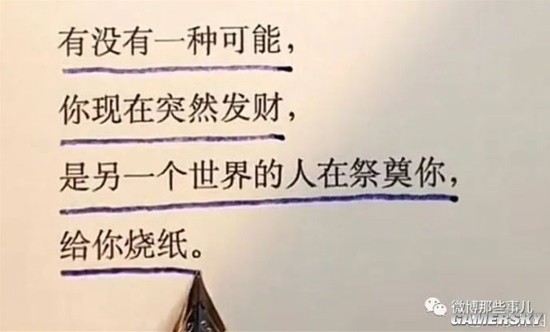 有没有一种可能，
你现在突然发财，
是另一个世界的人在祭奠你，
给你烧纸。
微博那些事儿
GAMERSKY